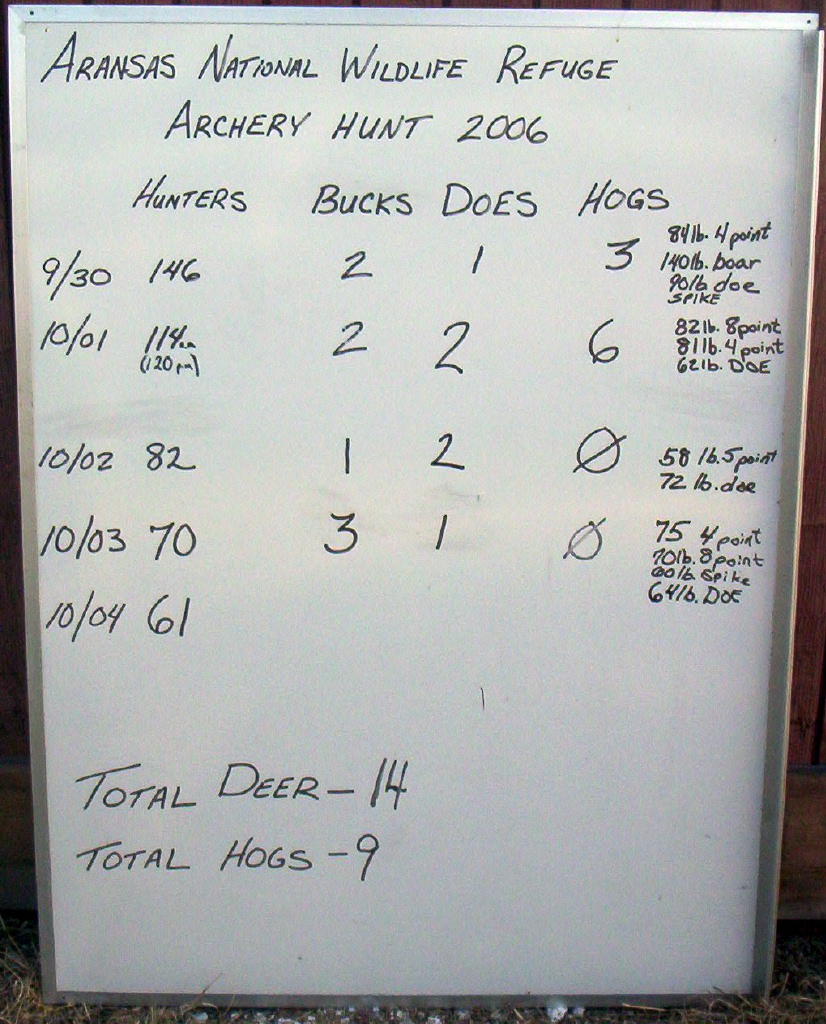 ARANSAS NATIONAL WILDLIFE REFUGE
ARCHERY HUNT 2006
HUNTERS BUCKS DOES HOGS
9/30 146 2 1 3
84lb. 4 point
140lb. boar
90lb doe
SPIKE
10/01 114am 2 2 6
(120 pm)
82lb. 8point
81lb. 4 point
62lb. DOE
10/02 82 1 2 Ø
58 lb. 5 point
72 lb. doe
10/03 70 3 1 Ø
75 4 point
70lb. 8 point
lb. Spike
64lb. DOE
10/04 61
TOTAL DEER – 14
TOTAL HOGS – 9